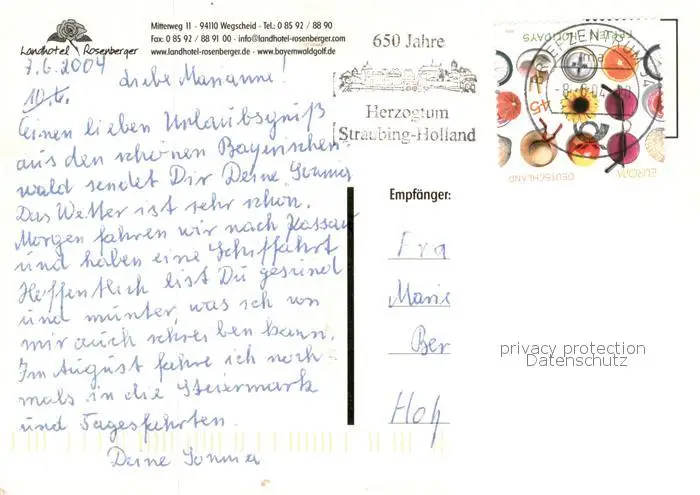 Landhotel Rosenberger
Mitterweg 11 - 94110 Wegscheid - Tel.: 0 85 92 / 88 90
Fax: 0 85 92 / 88 91 00 - info@landhotel-rosenberger.com
www.landhotel-rosenberger.de - www.bayernwaldgolf.de
650 Jahre
Herzogtum
Straubing-Holland
BRIEFZENTRUM
FERIEN HOLIDAYS
45
DEUTSCHLAND
EUROPA
7.6.2004
10.6.
Liebe Marianne!
Einen lieben Urlaubsgruß
aus den schönen Bayerischen
wald sendet Dir Deine
Das Wetter ist sehr schön.
Morgen fahren wir nach Passau
und haben eine Schiffahrt
Hoffentlich bist Du gesund
und munter, was ich von
mir auch schreiben kann.
Im August fahre ich noch
mals in die Steiermark
und Tagesfahrten.
Deine
Empfänger:
Fra
Marie
Ber
Hoh
privacy protection
Datenschutz